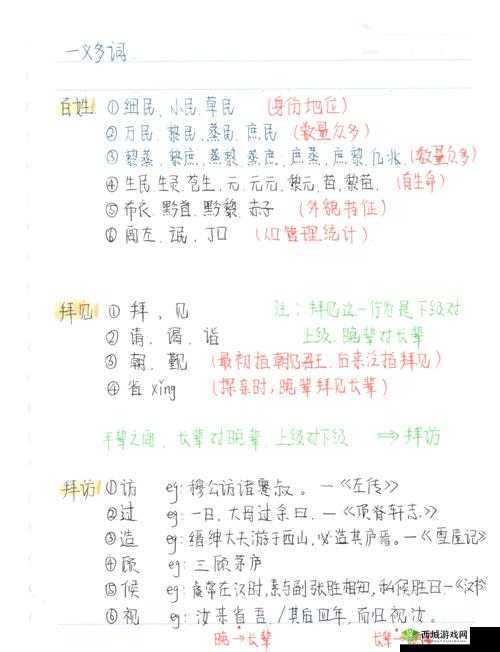 一义多词
百姓 ①细民、小民、草民 (身份地位)
②万民、黎民、蒸民、庶民 (数量众多)
③黎蒸、黎庶、蒸黎、蒸庶、庶蒸、庶黎、亿兆、(数量众多)
④生民、生灵、苍生、元、元元、黎元、苗、黎苗、(有生命)
⑤布衣、黔首、黔黎、赤子 (外貌特征)
⑥闾左、氓、丁口 (人口管理统计)
拜见 ①拜、见 注:拜见这一行为是下级对
②请、谒、诣 上级,晚辈对长辈
③朝、觐 (最初指朝见君王,后来泛指拜见)
④省 xǐng (探亲时,晚辈拜见长辈)
平辈之间、长辈对晚辈、上级对下级 ⟹拜访
拜访 ①访 eg:穆公访诸蹇叔。—《左传》
②过 eg:一日,大母过余曰.—《项脊轩志》
③造 eg:缙绅大夫游于西山,必造其庐焉。—《雪屋记》
④顾 eg:三顾茅庐
⑤候 eg:虞常在汉时,素与副张胜相知,私候胜曰—《汉书
⑥视 eg:汝来省吾/其后四年,而归视汝。
晚→长辈 长辈→
西城游戏网